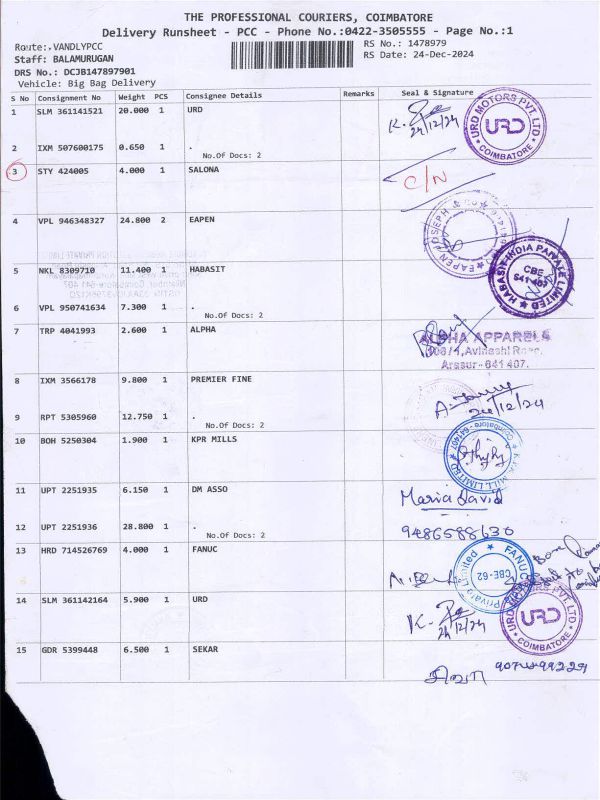 THE PROFESSIONAL COURIERS, COIMBATORE
Delivery Runsheet - PCC - Phone No.:0422-3505555 - Page No.:1
Route: VANDLYPCC
RS No.: 1478979
Staff: BALAMURUGAN
RS Date: 24-Dec-2024
DRS No.: DCJB147897901
Vehicle: Big Bag Delivery
S No Consignment No Weight PCS Consignee Details Remarks Seal & Signature
1 SLM 361141521 20.000 1 URD
K. 24/12/24
URD MOTORS PVT. LTD. URD COIMBATORE
2 IXM 507600175 0.650 1 .
No.Of Docs: 2
3 STY 424005 4.000 1 SALONA
C/N
4 VPL 946348327 24.800 2 EAPEN
EAPEN JOSEPH & CO
5 NKL 8309710 11.400 1 HABASIT
HABASIT INDIA PRIVATE LIMITED CBE 641 407
6 VPL 950741634 7.300 1 .
No.Of Docs: 2
7 TRP 4041993 2.600 1 ALPHA
ALPHA APPARELS
106/1, Avinashi Road,
Arasur - 641 407.
8 IXM 3566178 9.800 1 PREMIER FINE
24/12/24
9 RPT 5305960 12.750 1 .
No.Of Docs: 2
10 BOH 5250304 1.900 1 KPR MILLS
K.P.R. MILL LIMITED Coimbatore - 641407
11 UPT 2251935 6.150 1 DM ASSO
Maria david
12 UPT 2251936 28.800 1 .
No.Of Docs: 2
9486588630
13 HRD 714526769 4.000 1 FANUC
FANUC Private Limited CBE-62
14 SLM 361142164 5.900 1 URD
K. 24/12/24
URD MOTORS PVT. LTD. URD COIMBATORE
15 GDR 5399448 6.500 1 SEKAR